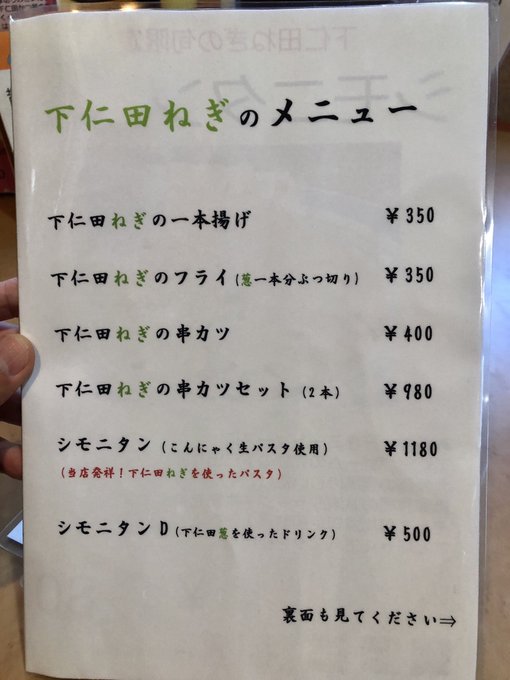 下仁田ねぎのメニュー
下仁田ねぎの一本揚げ ¥350
下仁田ねぎのフライ(葱一本分ぶつ切り) ¥350
下仁田ねぎの串カツ ¥400
下仁田ねぎの串カツセット(2本) ¥980
シモニタン(こんにゃく生パスタ使用) ¥1180
(当店発祥!下仁田ねぎを使ったパスタ)
シモニタンD(下仁田葱を使ったドリンク) ¥500
裏面も見てください⇒